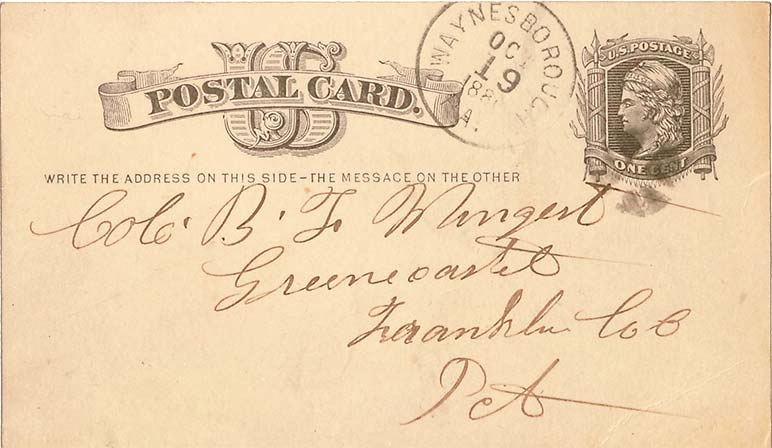 US
POSTAL CARD.
WAYNESBOROUGH
OCT
19
188
A.
U.S. POSTAGE
ONE CENT
WRITE THE ADDRESS ON THIS SIDE – THE MESSAGE ON THE OTHER
B. F.
Greencastel
Franklin Co
Pa